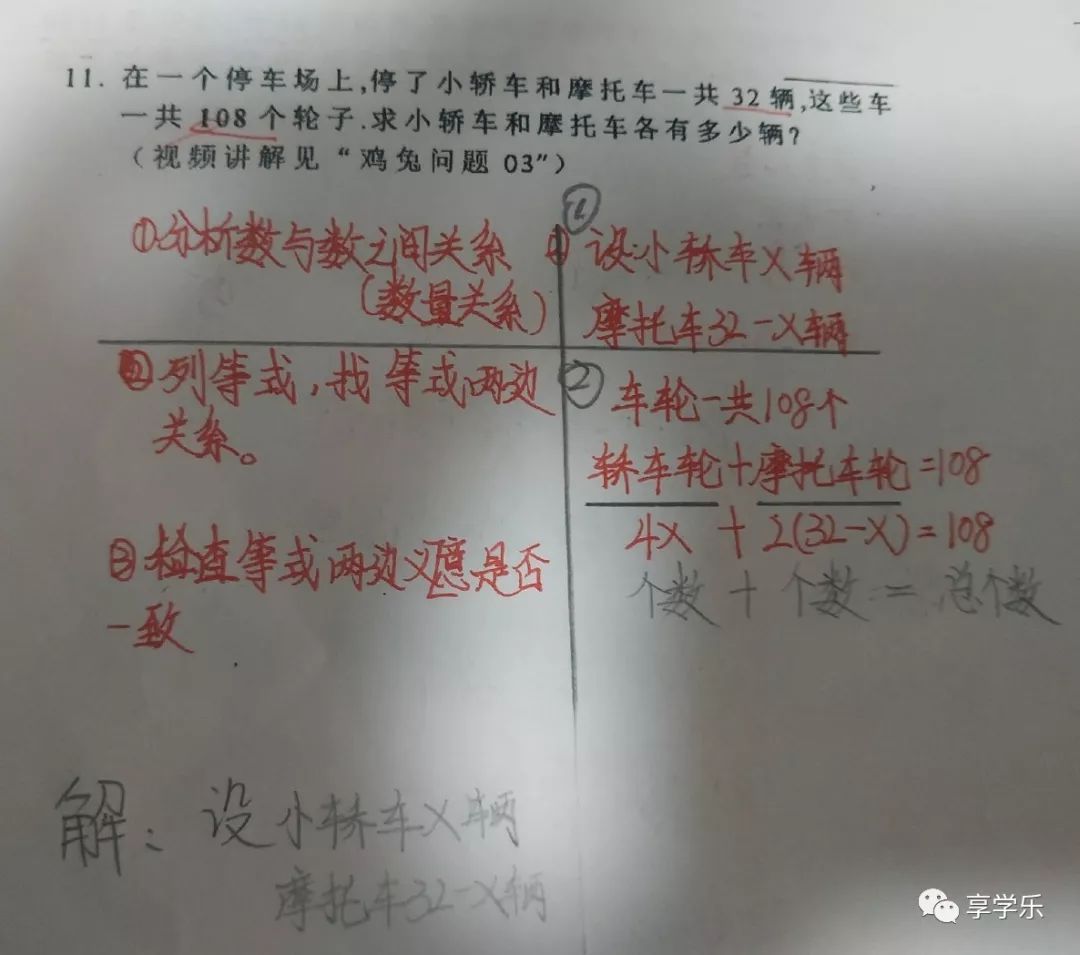 11. 在一个停车场上,停了小轿车和摩托车一共 32 辆,这些车
一共 108 个轮子.求小轿车和摩托车各有多少辆?
(视频讲解见“鸡兔问题 03”)
①分析数与数之间关系
(数量关系)
②列等式,找等式两边
关系。
③检查等式两边义意是否
一致
① 设小轿车X辆
摩托车32-X辆
② 车轮一共108个
轿车轮+摩托车轮=108
4X + 2(32-X)=108
个数 + 个数 = 总个数
解:设小轿车X辆
摩托车32-X辆
享学乐